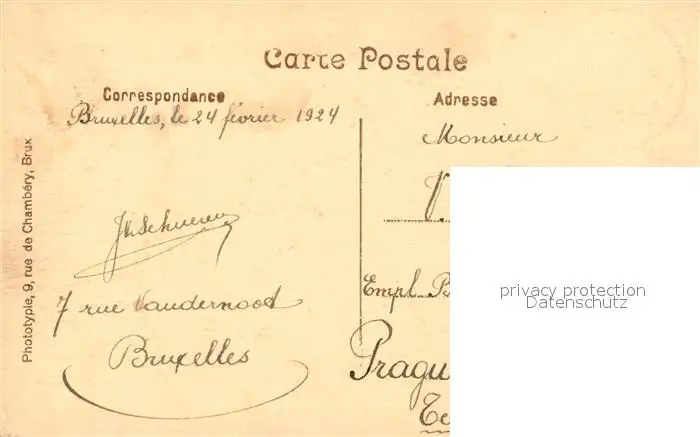 Carte Postale
Correspondance
Bruxelles, le 24 février 1924
7 rue Vandernoot
Bruxelles
Adresse
Monsieur
Empl.
Pragu
Phototypie, 9, rue de Chambéry, Brux
privacy protection
Datenschutz